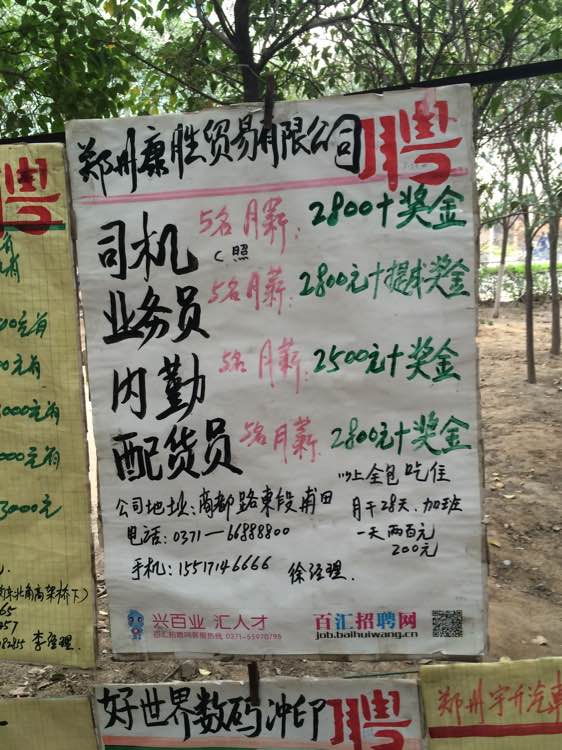 郑州康胜贸易有限公司 聘
司机 5名 月薪: 2800+奖金
C照
业务员 5名 月薪: 2800元+提成奖金
内勤 5名 月薪: 2500元+奖金
配货员 5名 月薪: 2800元+奖金
以上全包吃住
公司地址:商都路東段甫田
月干28天.加班
电话:0371—66888800
一天两百元
200元
手机:15517146666 徐经理.
兴百业 汇人才
百汇招聘网客服热线 0371-55970795
百汇招聘网
job.baihuiwang.cn
聘
000元
3000元
李经理
好世界数码冲印 聘
郑州宇升汽車